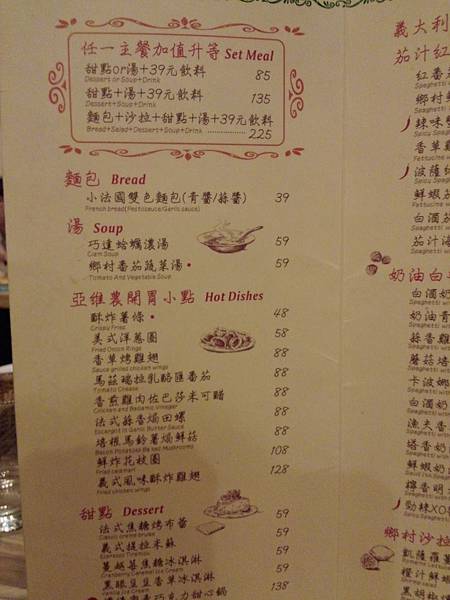 任一主餐加值升等 Set Meal
甜點or湯+39元飲料 85
Dessert or Soup+Drink
甜點+湯+39元飲料 135
Dessert+Soup+Drink
麵包+沙拉+甜點+湯+39元飲料
Bread+Salad+Dessert+Soup+Drink 225
麵包 Bread
小法國雙色麵包(青醬/蒜醬) 39
French bread(Pestosauce/Garlic sauce)
湯 Soup
巧達蛤蠣濃湯 59
Clam Soup
鄉村番茄蔬菜湯• 59
Tomato And Vegetable Soup
亞維農開胃小點 Hot Dishes
酥炸薯條• 48
Crispy Fried
美式洋蔥圈 58
Fried Onion Rings
香草烤雞翅 88
Sauce grilled chicken wings
馬茲瑞拉乳酪匯番茄 88
Tomato Cheese
香煎雞肉佐巴莎米可醋 88
Chicken and Balsamic Vinegar
法式蒜香焗田螺 88
Escargot in Garlic Butter Sauce
培根馬鈴薯焗鮮菇 88
Bacon Potatoes Baked Mushrooms
鮮炸花枝圈 108
Fried calamari
義式風味酥炸雞翅 128
Fried chicken wings
甜點 Dessert
法式焦糖烤布蕾 59
Classic creme brulee
義式提拉米蘇 59
Espresso Tiramisu
蔓越莓焦糖冰淇淋 59
Cranberry Caramel Ice Cream
黑眼豆豆香草冰淇淋 59
Vanilla Ice Cream
巧克力甜心鍋 138
義大利
茄汁紅
紅番茄
Spaghetti
鄉村鮮
辣味
Spicy Spaghetti
香草雞
Fettucine w
波隆
Spicy Spaghetti
鮮蝦茄
Fettucine w
白酒茄
Spaghetti w
茄汁海
Spaghetti
奶油白
白酒奶
Spaghetti with
奶油青
Spaghetti with
蒜香雞
Spaghetti with
蘑菇培
Spaghetti with
卡波娜
Spaghetti with
白酒奶
Spaghetti with
漁夫香
Spaghetti with
塔香奶
Spaghetti with
鮮蝦奶
檸香明
勁辣XO
Spicy Spaghetti
鄉村沙拉
凱薩蘿
橙汁鮮蝦
黑胡椒